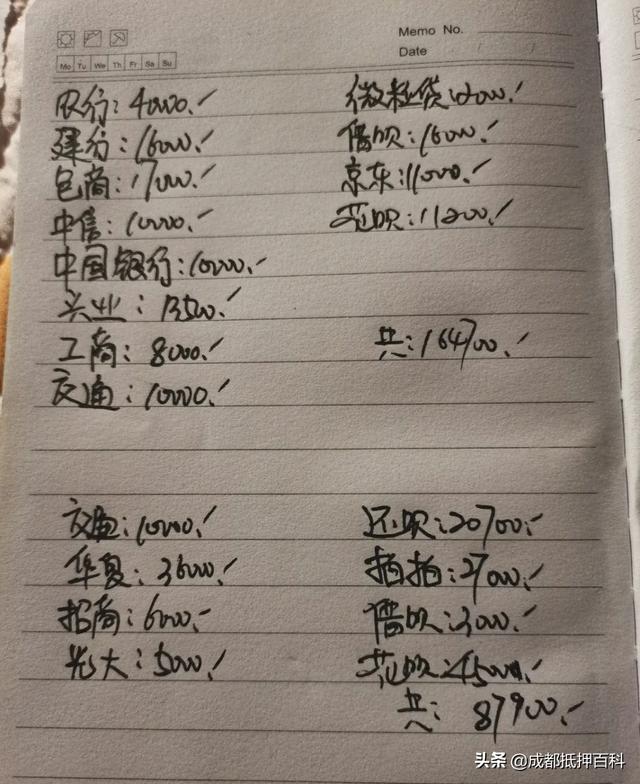 Memo No.
Date / /
Mo Tu We Th Fr Sa Su
农行:40000.✓
微粒贷:2000.✓
建行:16000.✓
借呗:16000.✓
包商:17000.✓
京东:11000.✓
中信:10000.✓
花呗:11200.✓
中国银行:10000.✓
兴业:13500.✓
工商:8000.✓
共:164700.✓
交通:10000.✓
交通:10000.✓
还呗:20700.✓
华夏:36000.✓
拍拍:2700.✓
招商:6000.✓
借呗:3000.✓
光大:5000.✓
花呗:4500.✓
共:87900.✓
头条 @成都抵押百科